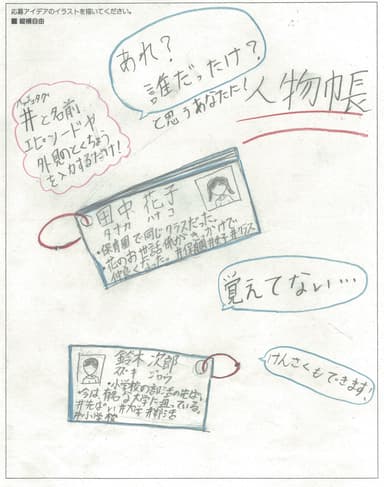 応募アイデアのイラストを描いてください。
■ 縦横自由
あれ？
誰だったけ？
と思うあなたに！
人物帳
ハッシュタグ
#と名前
エピソードや
外見のとくちょう
を入力するだけ！
田中 花子
タナカ ハナコ
・保育園で同じクラスだった。
・花のお世話係がきっかけで
仲良くなった。#保育園#女子#クラス
覚えてない…
鈴木 次郎
スズキ ジロウ
・小学校の部活の先ぱい
・今は有名な大学に通っている。
#先ぱい#大学#部活
#小学校
けんさくもできます！